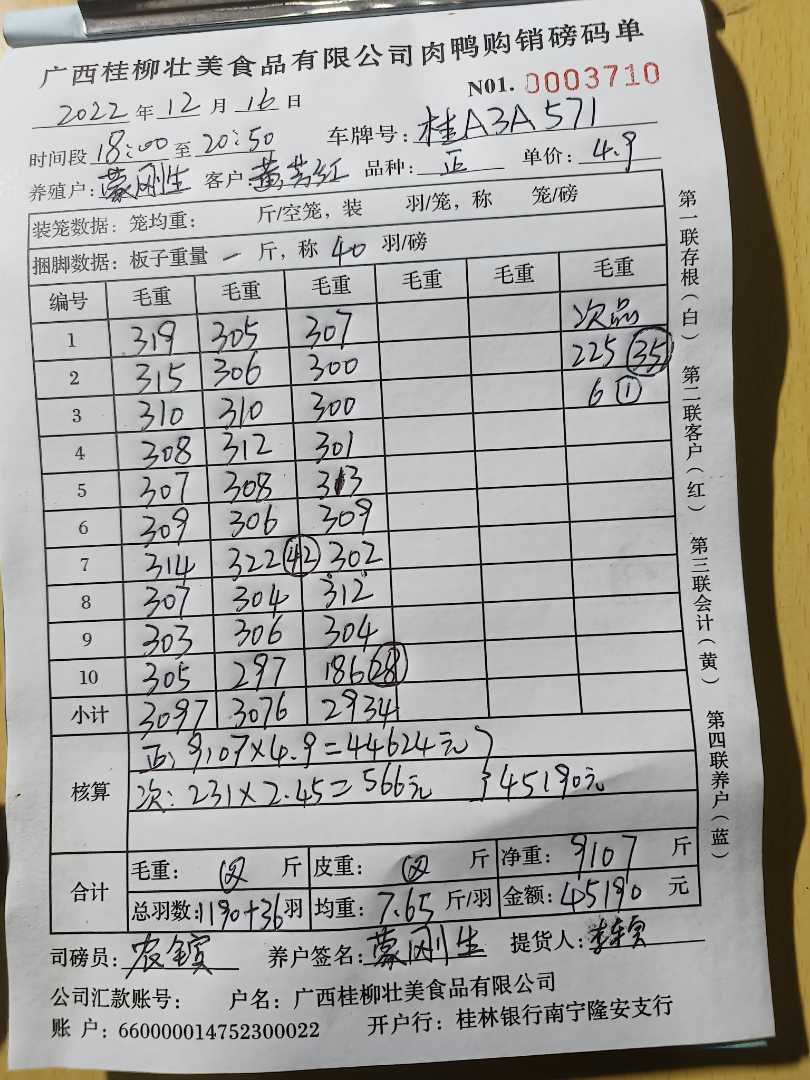 广西桂柳壮美食品有限公司肉鸭购销磅码单
NO1. 0003710
2022 年 12 月 16 日
时间段 18:00 至 20:50 车牌号: 桂A3A571
养殖户: 蒙刚生 客户: 黄芳红 品种: 正 单价: 4.9
装笼数据: 笼均重: 斤/空笼, 装 羽/笼, 称 笼/磅
捆脚数据: 板子重量 一 斤, 称 40 羽/磅
编号 毛重 毛重 毛重 毛重 毛重 毛重
1 319 305 307 次品
2 315 306 300 225 35
3 310 310 300 6 1
4 308 312 301
5 307 308 313
6 309 306 309
7 314 322 42 302
8 307 304 312
9 303 306 304
10 305 297 186 28
小计 3097 3076 2934
核算 正: 9107×4.9=44624元
次: 231×2.45=566元 } 45190元
合计 毛重: 斤 皮重: 斤 净重: 9107 斤
总羽数: 1190+36 羽 均重: 7.65 斤/羽 金额: 45190 元
司磅员: 养户签名: 蒙刚生 提货人:
公司汇款账号: 户名: 广西桂柳壮美食品有限公司
账 户: 660000014752300022 开户行: 桂林银行南宁隆安支行
第一联存根(白) 第二联客户(红) 第三联会计(黄) 第四联养户(蓝)